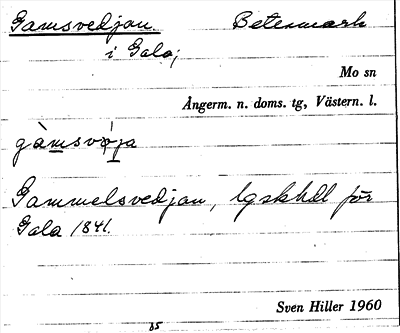 Gamsvedjan. Betesmark
i Gala;
Mo sn
Ångerm. n. doms. tg, Västern. l.
gàmsvø̀ja
Gammelsvedjan, lgskhdl för
Gala 1841.
Sven Hiller 1960